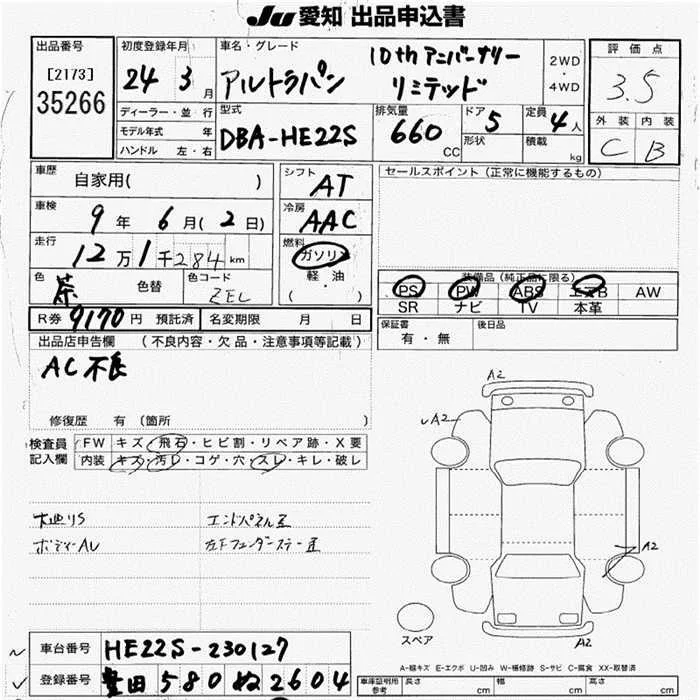 JU 愛知 出品申込書
出品番号
[2173]
35266
初度登録年月
24 3 月
車名・グレード
アルトラパン 10th アニバーサリー リミテッド
2WD
・
4WD
評価点
3.5
ディーラー・並・行
モデル年式 年
ハンドル 左・右
型式
DBA-HE22S
排気量
660 CC
ドア 5
形状
定員 4人
積載 kg
外装 内装
C B
車歴
自家用( )
車検
9年 6月(2日)
走行
12万1千284km
色
茶 色替
色コード
ZEL
シフト
AT
冷房
AAC
燃料
ガソリン
軽・油
( )
セールスポイント (正常に機能するもの)
装備品(純正品に限る)
PS PW ABS エアB AW
SR ナビ TV 本革
R券 9170円 預託済 名変期限 月 日
保証書
有・無
後日品
出品店申告欄 (不良内容・欠品・注意事項等記載)
AC不良
修復歴 有 (箇所 )
検査員
記入欄
FW キズ・飛石・ヒビ割・リペア跡・X要
内装 キズ・汚レ・コゲ・穴・スレ・キレ・破レ
大廻りS エンドパネル歪
ボディーAU 左Fフェンダーステー歪
A2
A2
A2
スペア
A2
車台番号 HE22S-230127
登録番号 豊田 580 ぬ 2604
A-線キズ E-エクボ U-凹み W-補修跡 S-サビ C-腐食 XX-取替済
車庫証明用
参考
長さ cm 幅 cm 高さ cm